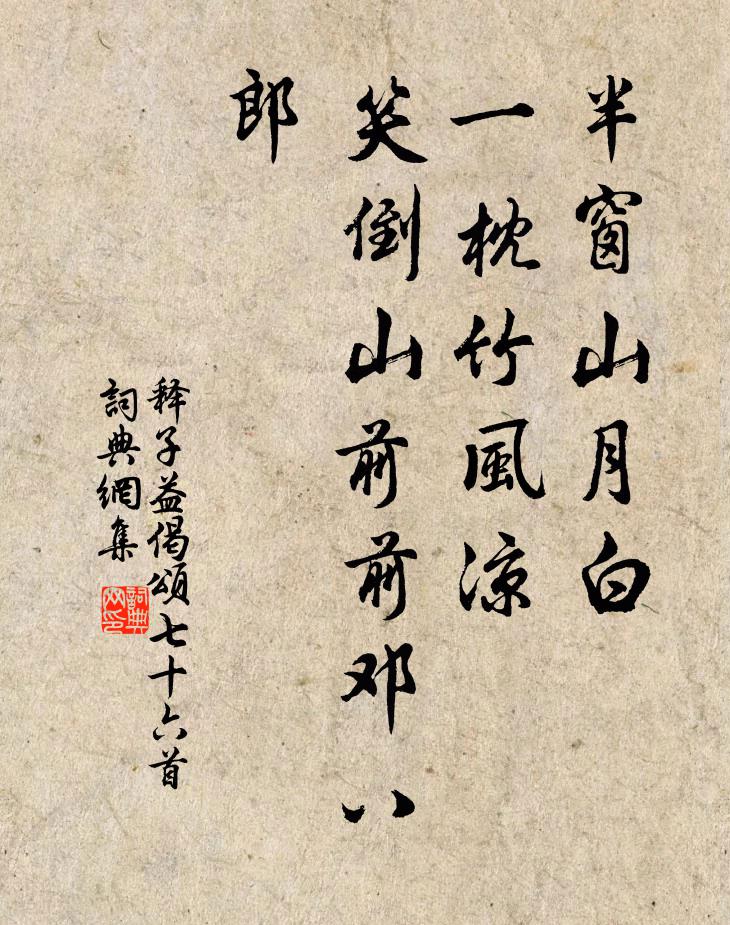 半窗山月白
一枕竹風涼
笑倒山前前邓八
郎
释子益偈頌七十六首
詞典網集
詞典网印